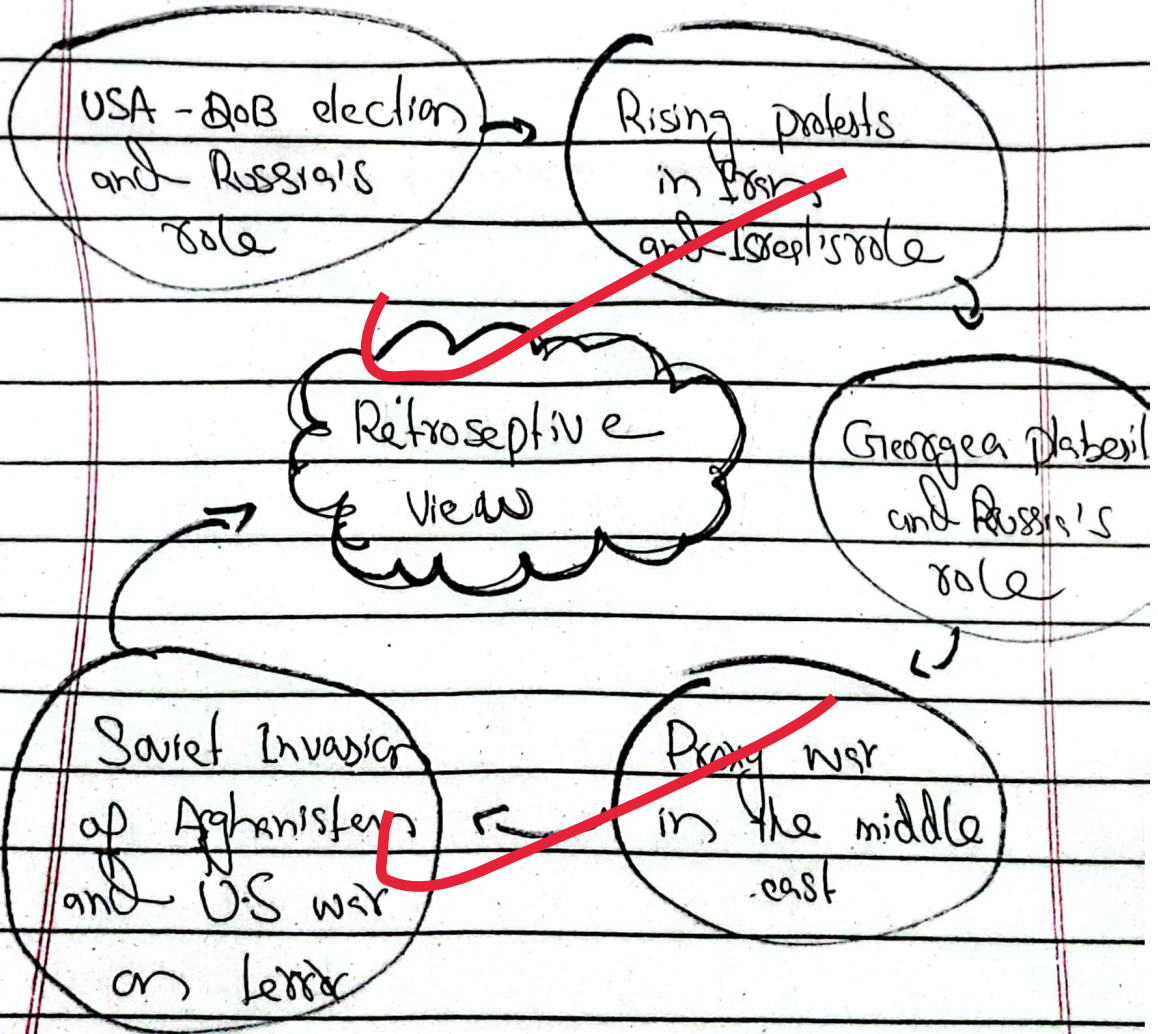 USA - election
and Russia's
role
Rising protests
in Iran,
and Isreal's role
Retroseptive
View
Georgea
and Russia's
role
Proxy war
in the middle
east
Soviet Invasion
of Afghanistan
and U.S war
on terror